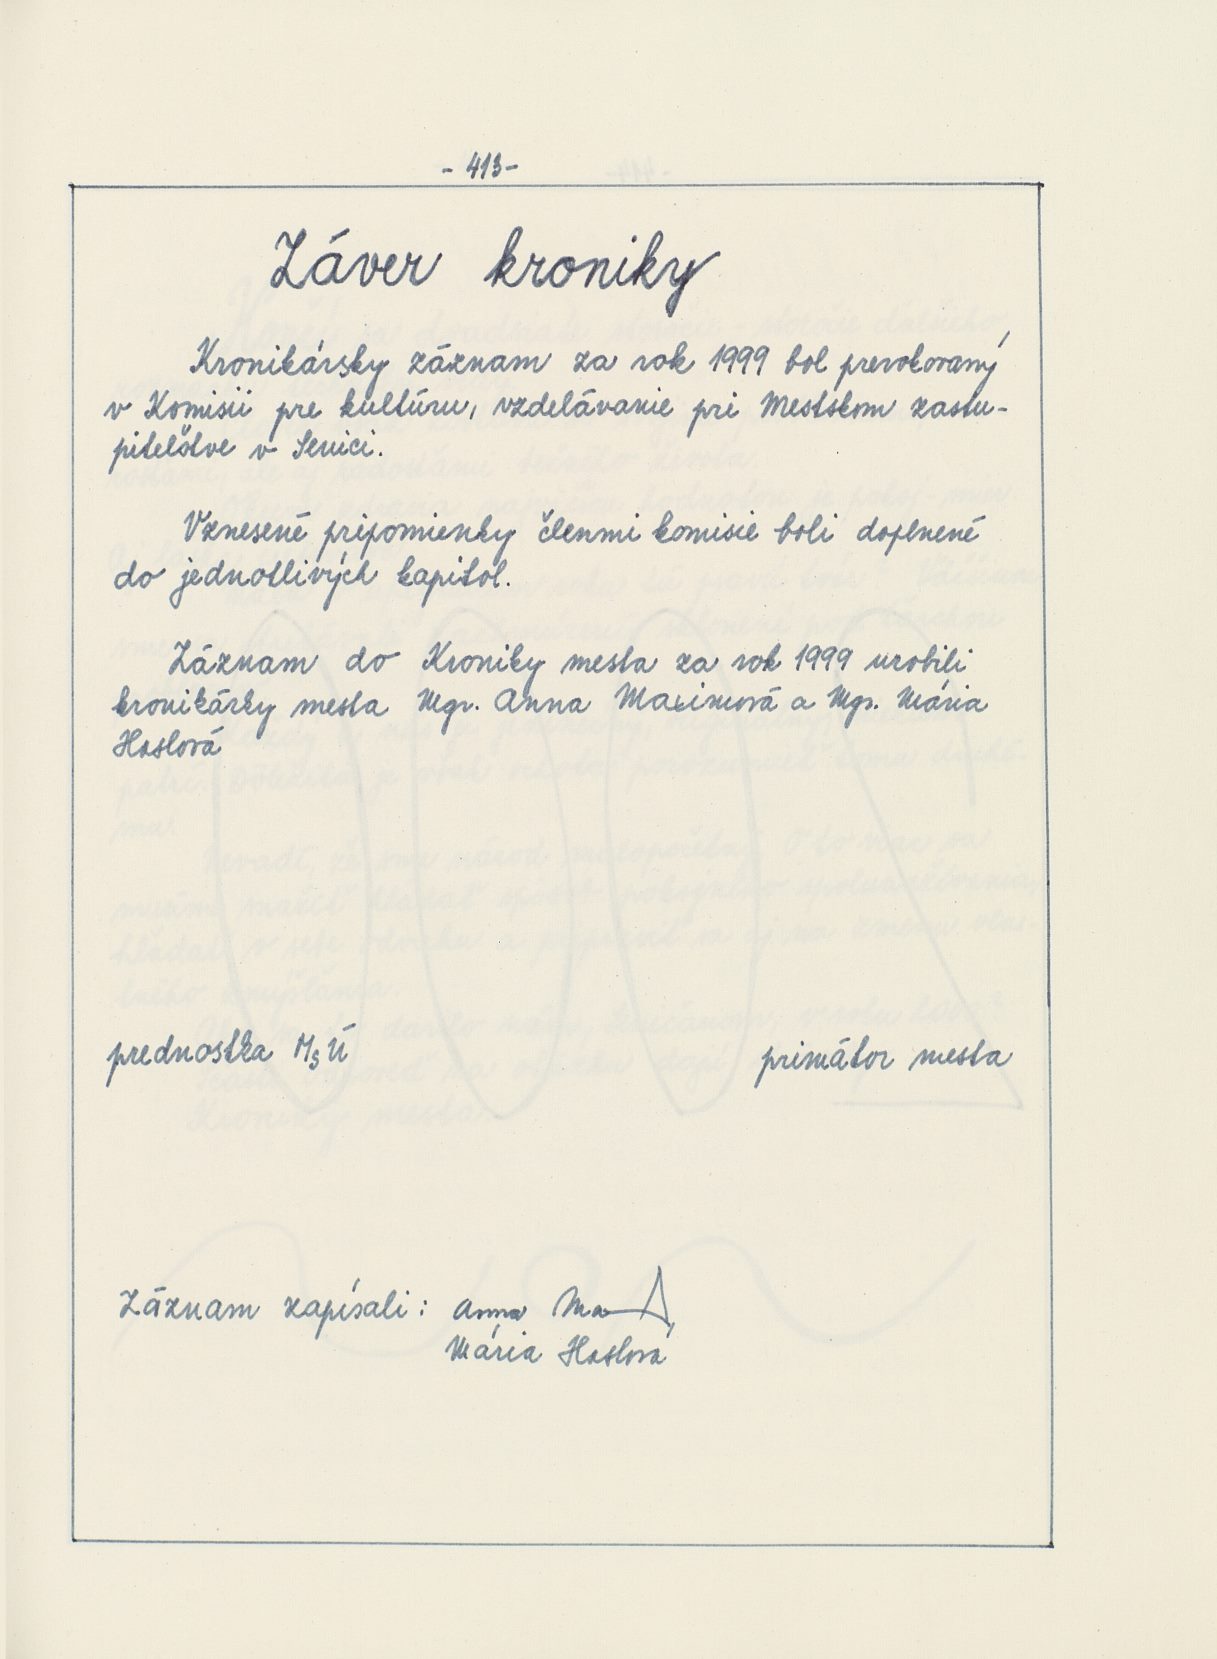 - 413 -
Záver kroniky
Kronikársky záznam za rok 1999 bol prerokovaný
v Komisii pre kultúru, vzdelávanie pri Mestskom zastu-
pitelstve v Senici.
Vznesené pripomienky členmi komisie boli doplnené
do jednotlivých kapitol.
Záznam do Kroniky mesta za rok 1999 urobili
kronikárky mesta Mgr. Anna Maximová a Mgr. Mária
Hoslová
prednostka MsÚ primátor mesta
Záznam zapísali: Anna
Mária Hoslová